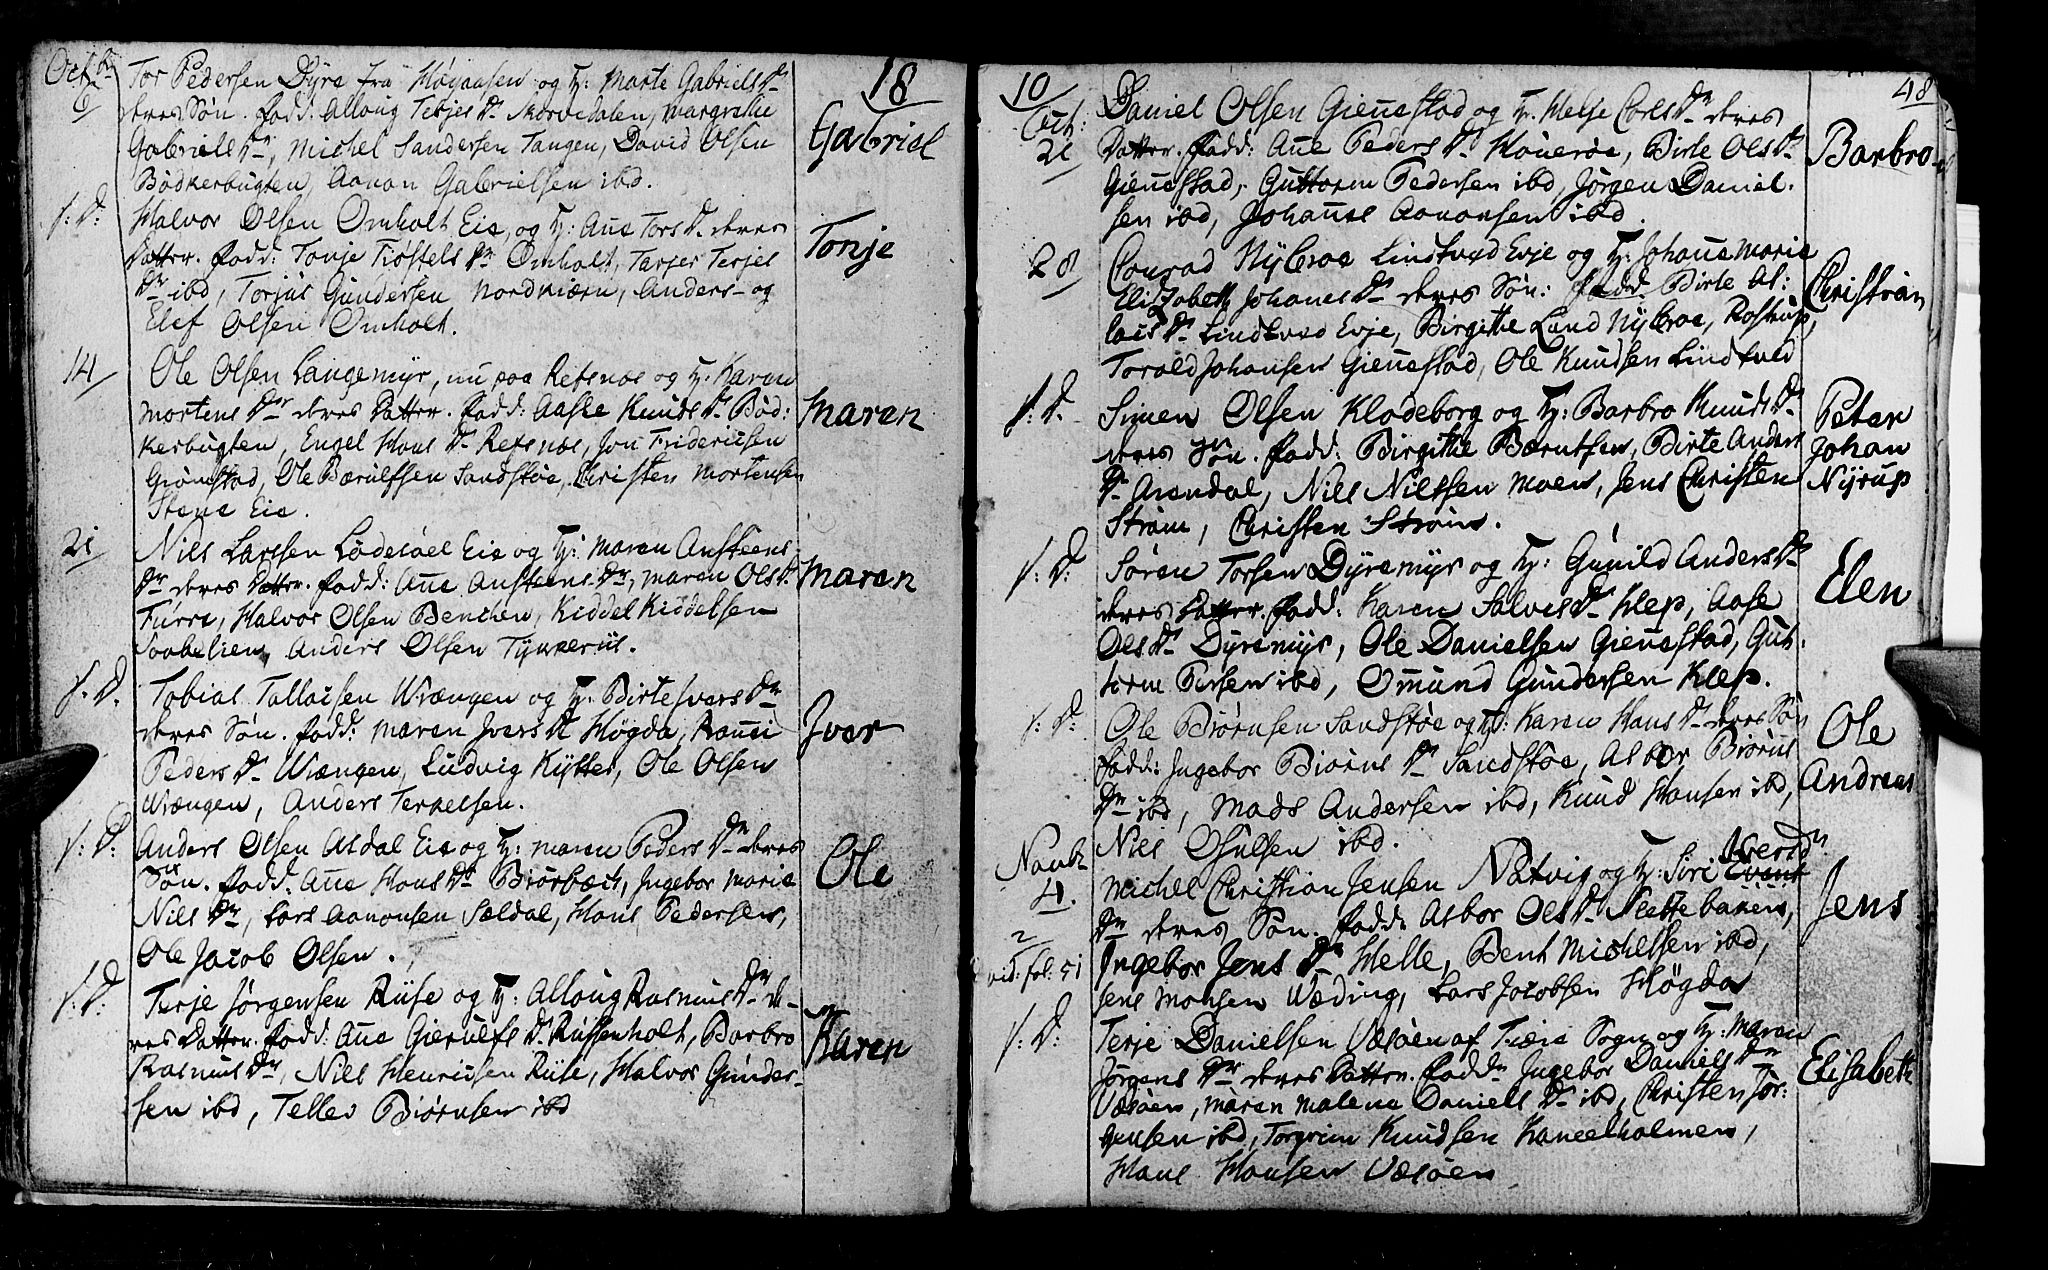 Octbr
6
18
Tor Pedersen Dyre fra Høyaasen og H: Marte Gabriels Dr
deres Søn. fadd: Alloug Terjes Dr Skorvedalen, Margrethe
Gabriels Dr, Michel Sandersen Tangen, David Olsen
Bødkerbugten, Aanon Gabrielsen ibd.
Gabriel
s: D:
Halvor Olsen Omholt Eie, og H: Ane Tors Dr deres
Datter. fadd: Tonje Tiøstels Dr Omholt, Tarjer Terjes
Dr ibd, Torjus Gundersen Nordkiærn, Anders og
Elef Olsen Omholt.
Tonje
14
Ole Olsen Langemyr, nu paa Refsnæs og H: Karen
Mortens Dr deres Datter. fadd: Aasle Knuds Dr Bød:
kerbugten, Engel Hans Dr Refsnæs, Jon Friderichsen
Giømstad, Ole Bærulfsen Sandstøe, Christen Mortensen
Stene Eie.
Maren
21
Niels Larssen Lødesøel Eie og H: Maren Ansteens
Dr deres Datter. fadd: Ane Ansteens Dr, Maren Ols Dr
Furre, Halvor Olsen Benchen, Kiddel Kiddelsen
Anders Olsen
Maren
s: D.
Tobias Tallaksen Wrængen og H: Birte Ivers Dr
deres Søn. fadd: Maren Ivers Dr Høgda,
Peders Dr Wrængen, Ludvig Kytter, Ole Olsen
Wrængen, Anders Terkelsen.
Iver
s: D:
Anders Olsen Asdal Eie og H: Maren Peders Dr deres
Søn. fadd: Ane Hans Dr Biørbæch, Ingebor Marie
Niels Dr, Lars Aanonsen Sældal, Hans Pedersen,
Ole Jacob Olsen.
Ole
s: D:
Terje Jørgensen Riise og H: Alloug Rasmus Dr de-
res Datter. fadd: Ane Gierulfs Dr Russenholt, Barbro
Rasmus Dr, Niels Henrichsen Riise, Halvor Gunder-
sen ibd, Tellev Biørnsen ibd
Karen
10
Oct:
21
48
Daniel Olsen Gienestad og H. Helje Carls Dr deres
Datter. fadd: Ane Peders Dr Houerøe, Birte Ols Dr
Gienestad, Guttorm Pedersen ibd, Jørgen Daniel-
sen ibd, Johanes Aanonsen ibd.
Barbro
28
Conrad Nybroe Lindtved Evje og H: Johane Marie
Elizabeth Johanes Dr deres Søn: fadd: Birte at:
Dr Lindtved Evje, Birgithe Lund Nybroe, Rostrup,
Torald Johansen Gienestad, Ole Knudsen Lindtved
Christian
s: D.
Simen Olsen Klodeborg og H: Barbro Knuds Dr
deres Søn. fadd: Birgithe Bærntsen, Birte Anders
Dr Arendal, Niels Nielssen Moen, Jens Christen
Strøm, Christen Strøm.
Peter
Johan
Nyrup
s: D:
Søren Torsen Dyremyr og H: Gunild Anders Dr
deres Datter. fadd: Karen Salves Dr Klep, Aase
Ols Dr Dyremyr, Ole Danielsen Gienestad, Gut-
torm Persen ibd, Omund Gundersen Klep.
Elen
s: D:
Ole Biørnsen Sandstøe og H: Karen Hans Dr deres Søn
fadd: Ingebor Biørns Dr Sandstøe, Asbor Biørns
Dr ibd, Mads Andersen ibd, Knud Hansen ibd,
Niels Osulsen ibd.
Ole
Andreas
Novbr
4.
2
vid: fol: 51
Michel Christian Jensen Natvig og H: Siri Iverds
Dr deres Søn. fadd: Asbor Ols Dr Slettebakken,
Ingebor Jens Dr Helle, Bent Michelsen ibd,
Jens Monsen Wæding, Lars Jacobsen Høgda
Jens
s: D:
Terje Danielsen Væsøen af Trøe Sogn og H: Maren
Jørgens Dr deres Datter. fadd: Ingebor Daniels Dr
Væsøen, Maren Malene Daniels Dr ibd, Christen Jør:
gensen ibd, Torgrim Knudsen Kaneelholmen,
Hans Hansen Væsøen
Elisabeth